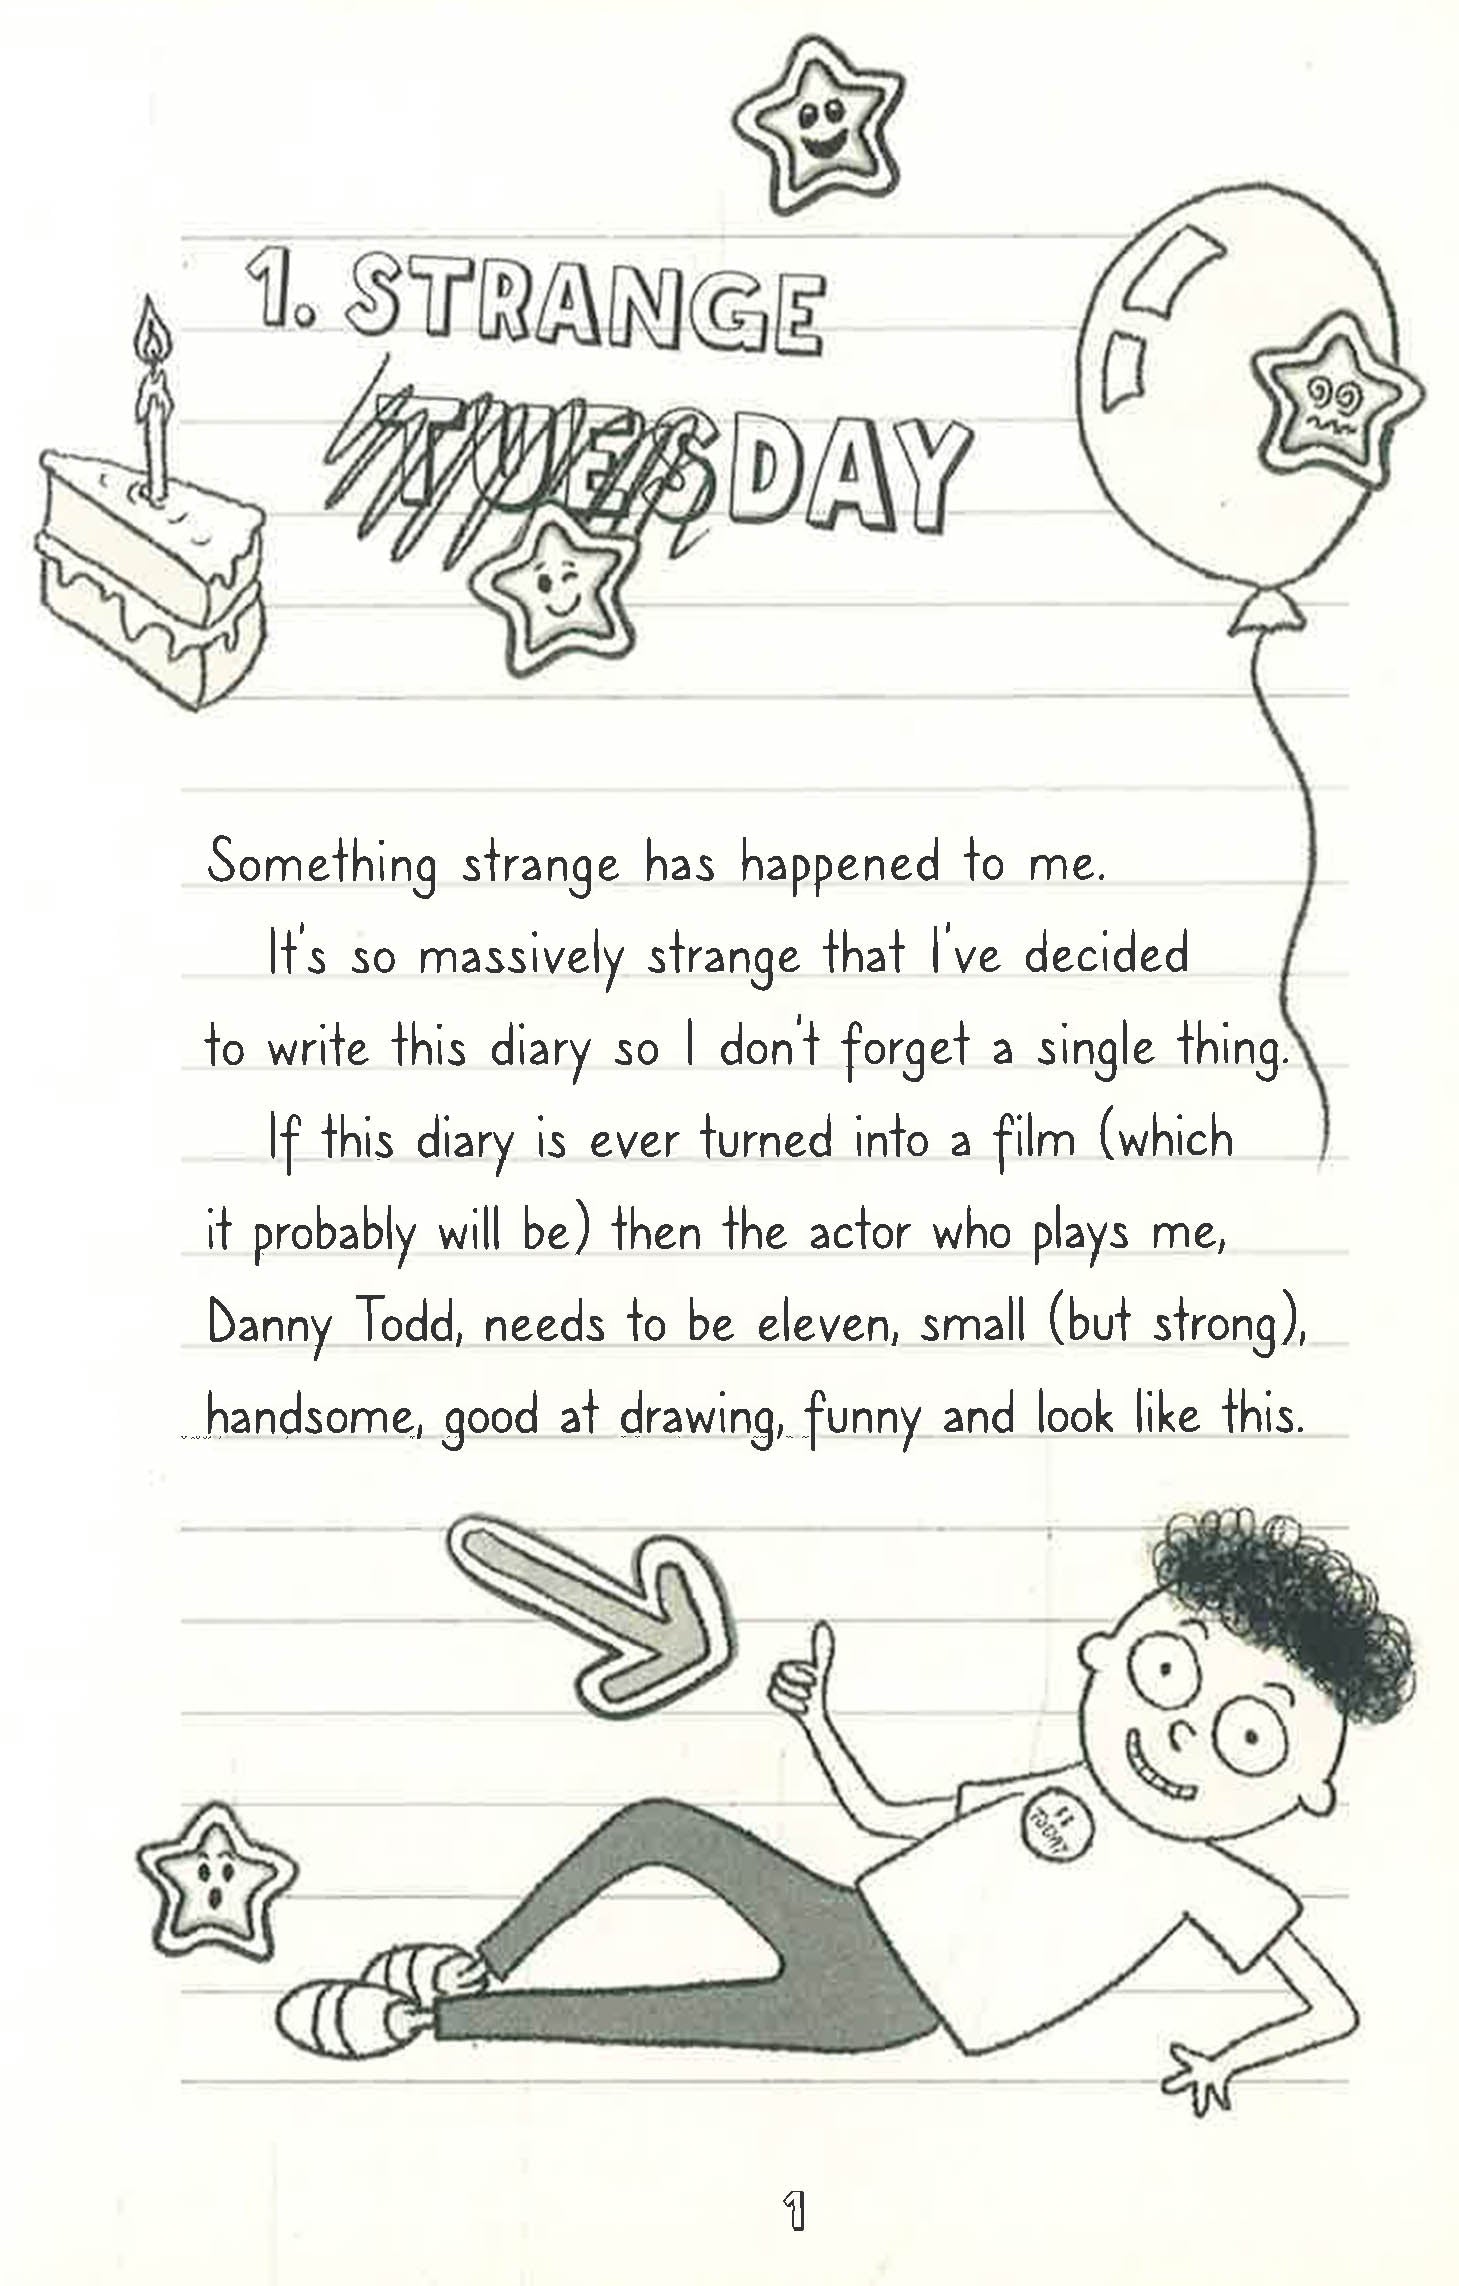 1. STRANGE
TUESDAY
Something strange has happened to me.
It's so massively strange that I've decided
to write this diary so I don't forget a single thing.
If this diary is ever turned into a film (which
it probably will be) then the actor who plays me,
Danny Todd, needs to be eleven, small (but strong),
handsome, good at drawing, funny and look like this.
11
TODAY
1